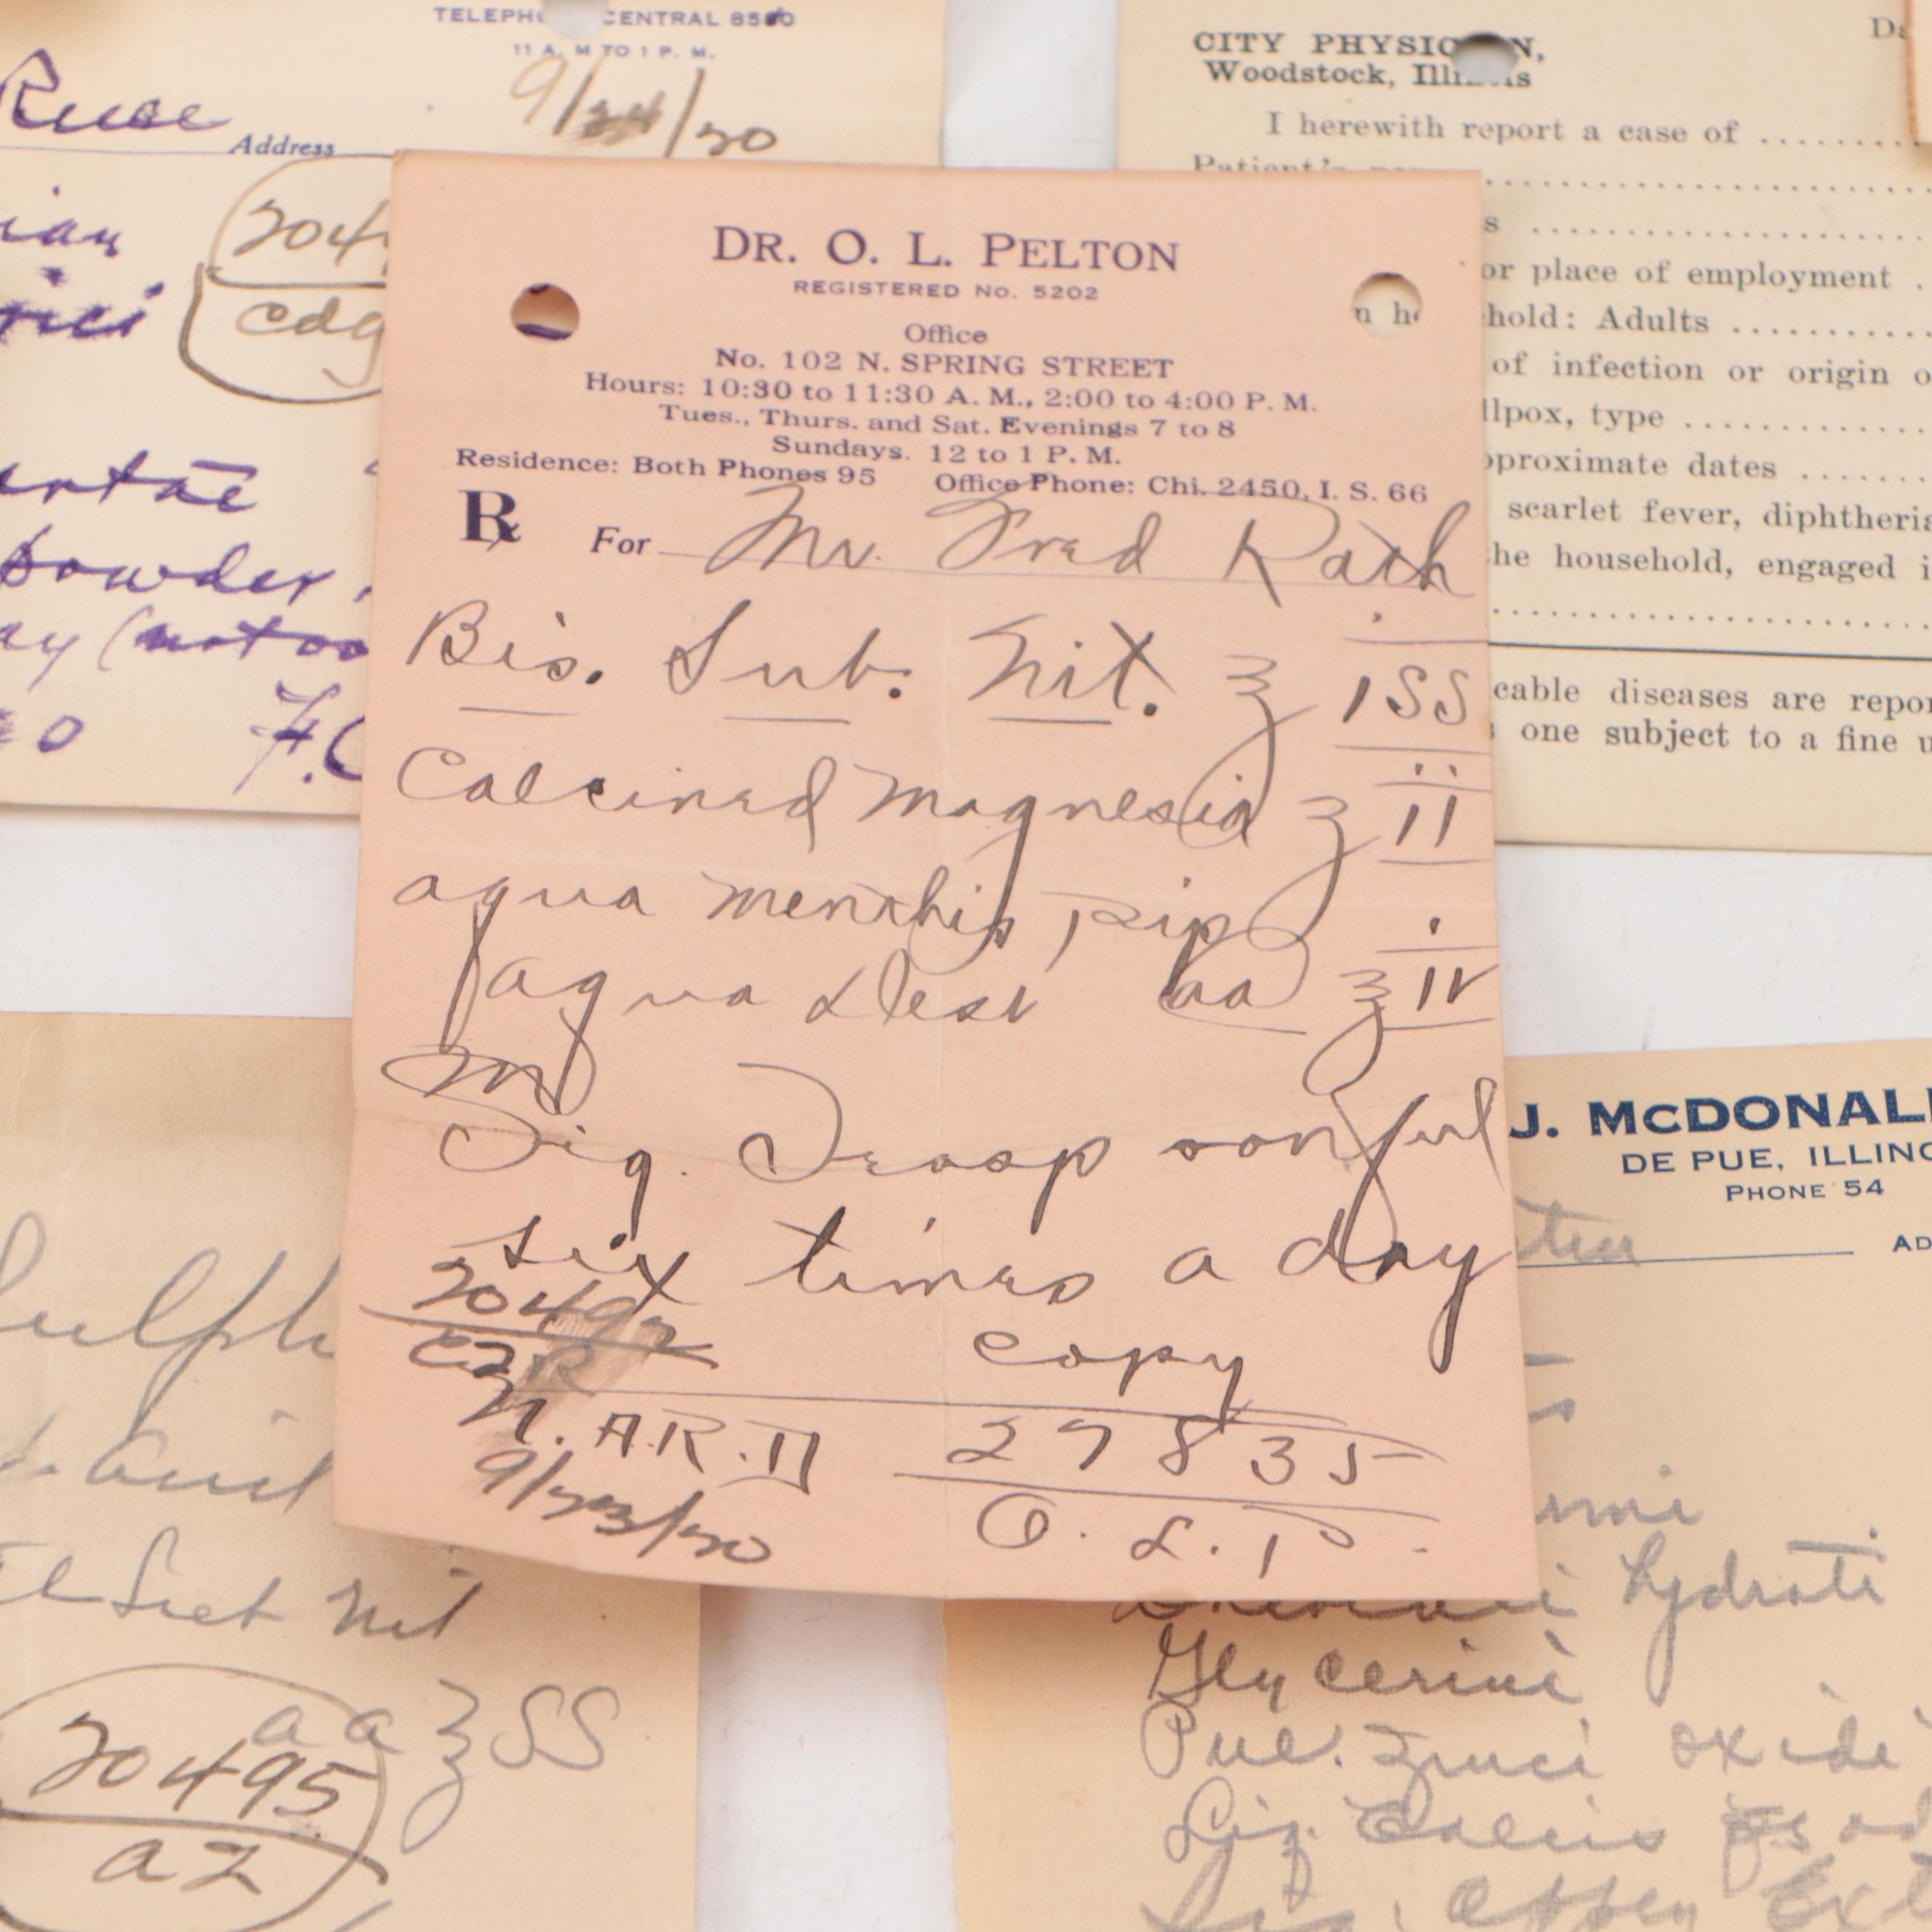 TELEPHO CENTRAL 8580
11 A. M TO 1 P. M.
9/24/20
Ruse
Address
powder
20
CITY PHYSIC N,
Woodstock, Illinois
I herewith report a case of
Patient's
or place of employment
hold: Adults
of infection or origin o
llpox, type
pproximate dates
scarlet fever, diphtheria
he household, engaged i
cable diseases are repor
one subject to a fine u
DR. O. L. PELTON
REGISTERED No. 5202
Office
No. 102 N. SPRING STREET
Hours: 10:30 to 11:30 A. M., 2:00 to 4:00 P. M.
Tues., Thurs. and Sat. Evenings 7 to 8
Sundays. 12 to 1 P. M.
Residence: Both Phones 95 Office Phone: Chi. 2450, I. S. 66
℞ For Mr. Fred Rath
Bis. Sub. Nit. ʒ iss
Calcined Magnesia ʒ ii
aqua Menthip pip
aqua dest aa ʒ iv
M
Sig. Teaspoonful
six times a day
20492
copy
N.A.R.D 27835
9/23/20 O. L. P.
J. MCDONAL
DE PUE, ILLINO
PHONE 54
AD
Sulph
Nit
aa ʒ ss
20495
az
hydrate
Glycerine
Pul. Zinci oxide
Liq. Calcis